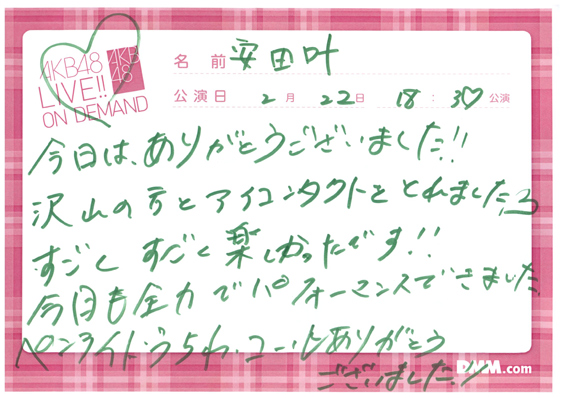 AKB48
LIVE!!
ON DEMAND
AKB
48
名前 安田叶
公演日 2月 22日 18:30♡ 公演
今日は、ありがとうございました!!
沢山の方とアイコンタクトをとれました
すごく すごく楽しかったです!!
今日も全力でパフォーマンスできました
ペンライト、うちわ、コールありがとう
ございました!
DMM.com